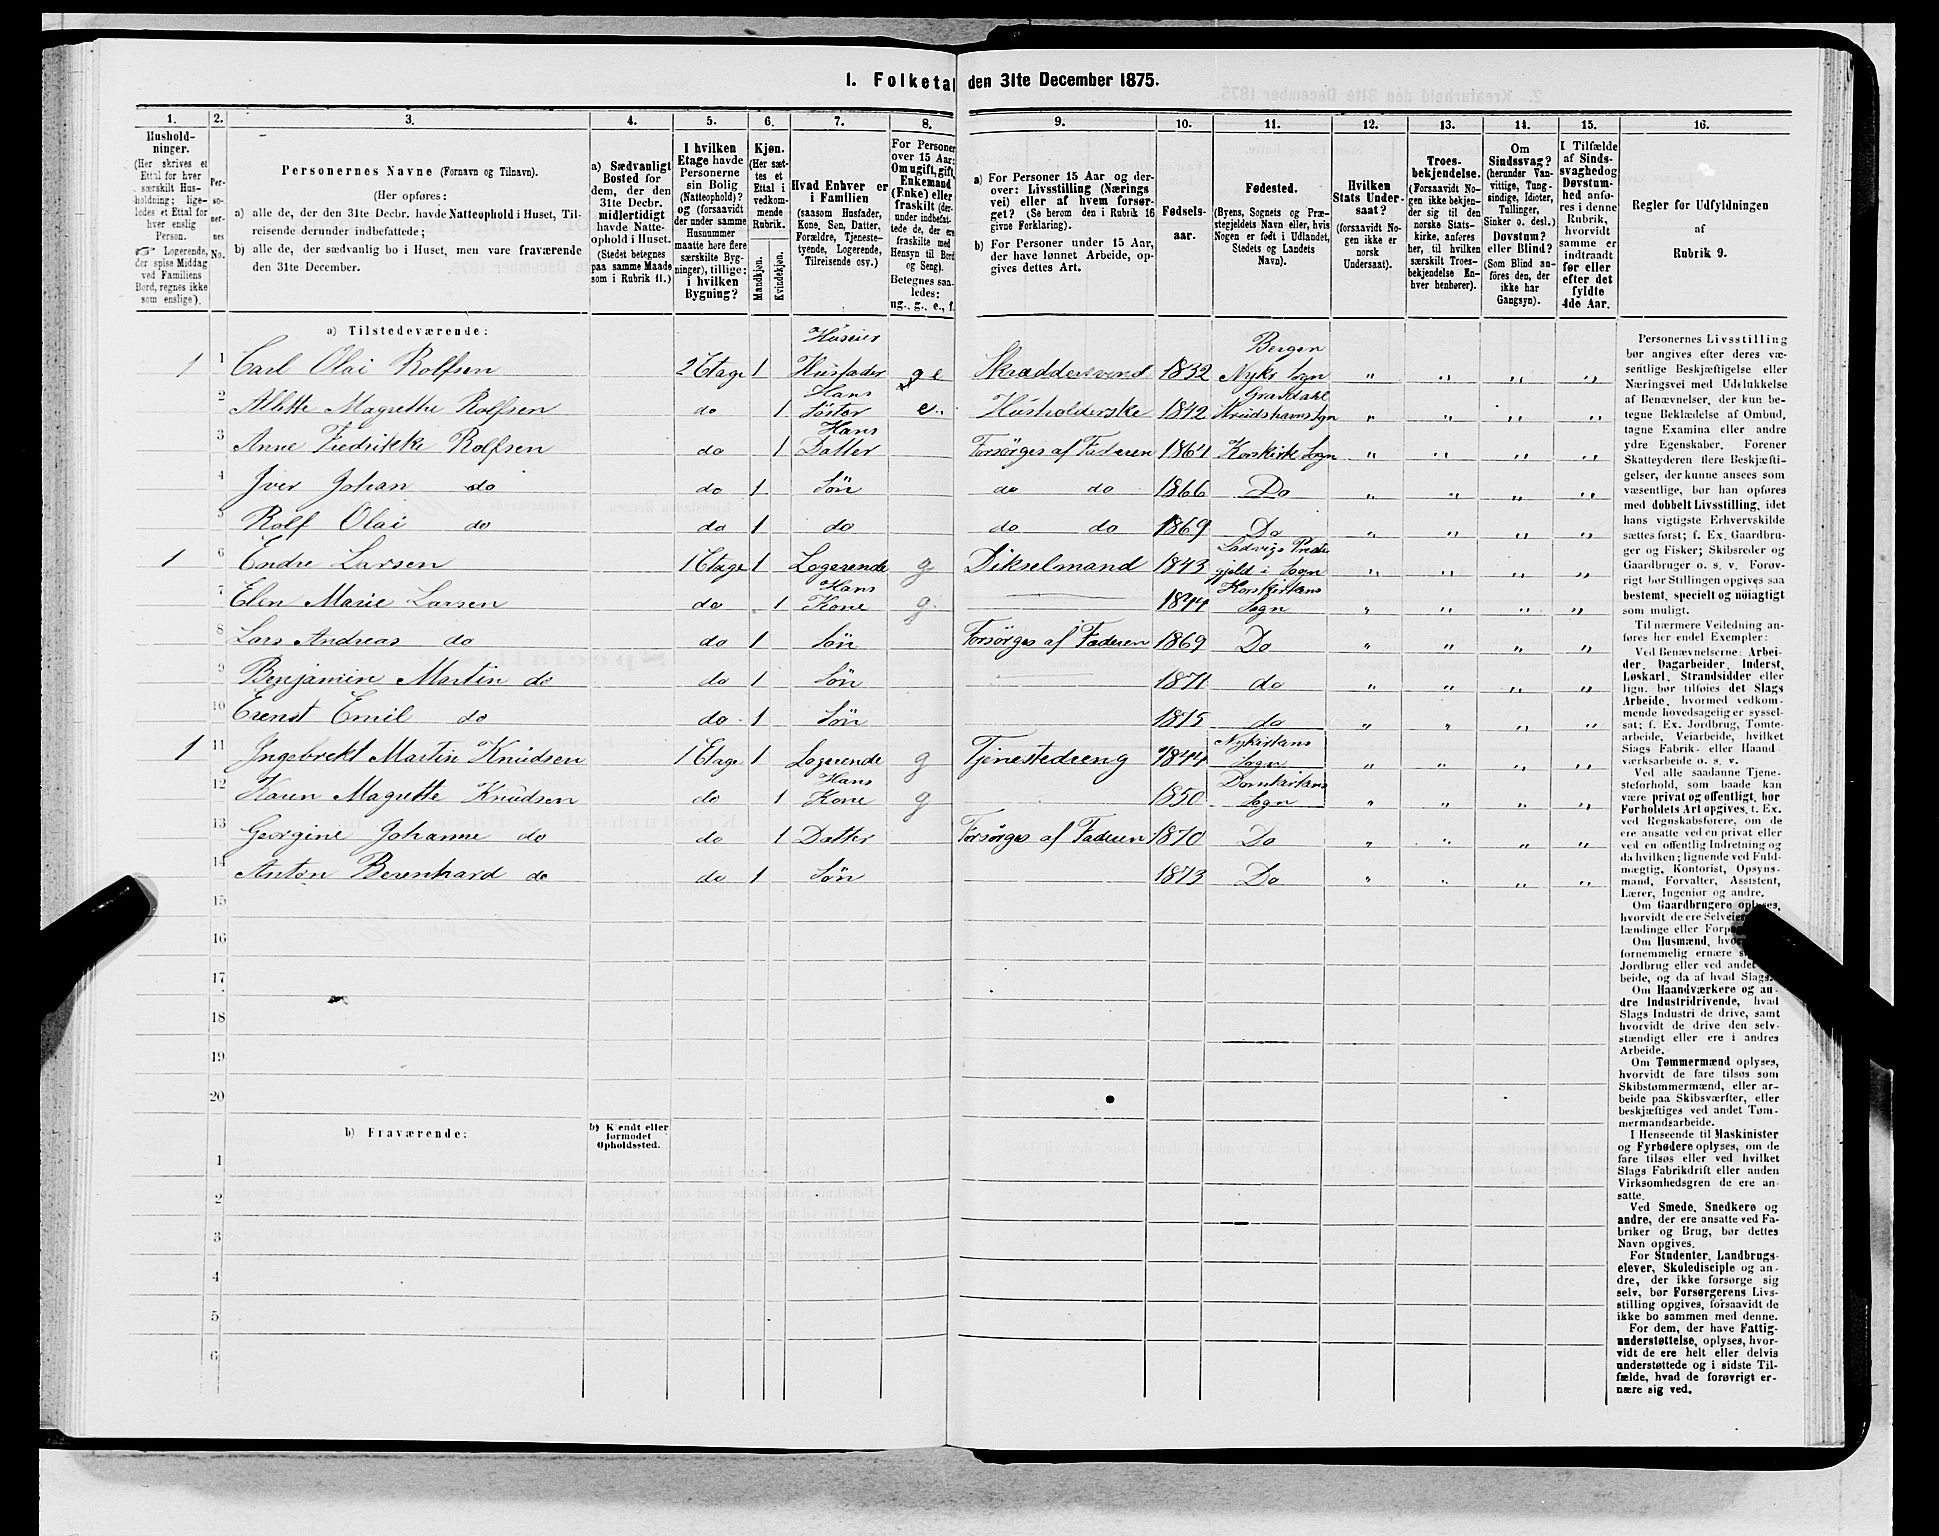 1. Folketa den 31te December 1875.
1. 2. 3. 4. 5. 6. 7. 8. 9. 10. 11. 12. 13. 14. 15. 16.
Hushold-
ninger.
(Her skrives et
Ettal for hver
særskilt Hus-
holdning; lige-
ledes et Ettal for
hver enslig
Person.
Logerende,
der spise Middag
ved Familiens
Bord, regnes ikke
som enslige).
Per-
so-
ner-
nes
No.
Personernes Navne (Fornavn og Tilnavn).
(Her opføres:
a) alle de, der den 31te Decbr. havde Natteophold i Huset, Til-
reisende derunder indbefattede;
b) alle de, der sædvanlig bo i Huset, men vare fraværende
den 31te December.
a) Sædvanligt
Bosted for
dem, der den
31te Decbr.
midlertidigt
havde Natte-
ophold i Huset.
(Stedet betegnes
paa samme Maade
som i Rubrik 11.)
I hvilken
Etage havde
Personerne
sin Bolig
(Natteophold)?
og (forsaavidt
der under samme
Husnummer
maatte høre flere
særskilte Byg-
ninger), tillige:
i hvilken
Bygning?
Kjøn.
(Her sæt-
tes et
Ettal i
vedkom-
mende
Rubrik.
Mandkjøn.
Kvindekjøn.
Hvad Enhver er
i Familien
(saasom Husfader,
Kone, Søn, Datter,
Forældre, Tjeneste-
tyende, Logerende,
Tilreisende osv.)
For Personer
over 15 Aar:
Om ugift, gift,
Enkemand
(Enke) eller
fraskilt (der-
under indbefat-
tede de, der ere
fraskilte med
Hensyn til Bord
og Seng).
Betegnes saa-
ledes:
ng., g., e., f.
a) For Personer 15 Aar og der-
over: Livsstilling (Nærings
vei) eller af hvem forsør-
get? (Se herom den i Rubrik 16
givne Forklaring).
b) For Personer under 15 Aar,
der have lønnet Arbeide, op-
gives dettes Art.
Fødsels-
aar.
Fødested.
(Byens, Sognets og Præ-
stegjeldets Navn eller, hvis
Nogen er født i Udlandet,
Stedets og Landets
Navn).
Hvilken
Stats Under-
saat?
(forsaavidt No-
gen ikke er
norsk
Undersaat).
Troes-
bekjendelse.
(Forsaavidt No-
gen ikke bekjen-
der sig til den
norske Stats-
kirke, anføres
her, til hvilken
særskilt Troes-
bekjendelse En-
hver henhører).
Om
Sindssvag?
(herunder Van-
vittige, Tung-
sindige, Idioter,
Tullinger,
Sinker o. desl.)
Døvstum?
eller Blind?
(Som Blind an-
føres den, der
ikke har
Gangsyn).
I Tilfælde
af Sinds-
svaghed og
Døvstum-
hed anfø-
res i denne
Rubrik,
hvorvidt
samme er
indtraadt
før eller
efter det
fyldte
4de Aar.
Regler for Udfyldningen
af
Rubrik 9.
a) Tilstedeværende:
1 1 Carl Olai Rolfsen 2 Etage 1 Huseier Husfader g e Skræddersvend 1832 Bergen Nyks Sogn
2 Alette Magrethe Rolfsen do 1 Hans Søster e Husholderske 1842 Gravdahl
3 Anne Fredrikke Rolfsen do 1 Hans Datter Forsørges af Faderen 1864 Korskirk Sogn
4 Iver Johan do do 1 Søn do do 1866 Do
5 Rolf Olai do do 1 do do do 1869 Do
1 6 Endre Larsen 1 Etage 1 Logerende g Dikselmand 1843 Ladvigs Præste gjeld i Sogn
7 Elen Marie Larsen do 1 Hans Kone g 1844 Korskirkens Sogn
8 Lars Andreas do do 1 Søn Forsørges af Faderen 1869 Do
9 Benjamin Martin do do 1 Søn 1871 do
10 Erenst Emil do do 1 Søn 1875 do
1 11 Ingebrekt Martin Knudsen 1 Etage 1 Logerende g Tjenestedreng 1844 Nykirkens Sogn
12 Karen Magrette Knudsen do 1 Hans Kone g 1850 Domkirkens Sogn
13 Georgine Johanne do do 1 Datter Forsørges af Faderen 1870 Do
14 Anton Berenhard do do 1 Søn 1873 Do
15
16
17
18
19
20
b) Fraværende:
b) Kjendt eller
formodet
Opholdssted.
1
2
3
4
5
6
Personernes Livsstilling
bør angives efter deres væ-
sentlige Beskjæftigelse eller
Næringsvei med Udelukkelse
af Benævnelser, der kun be-
tegne Beklædelse af Ombud,
tagne Examina eller andre
ydre Egenskaber. Forener
Skatteyderen flere Beskjæfti-
gelser, der kunne ansees som
væsentlige, bør han opføres
med dobbelt Livsstilling, idet
hans vigtigste Erhvervskilde
sættes først; f. Ex. Gaardbru-
ger og Fisker; Skibsreder og
Gaardbruger o. s. v. Forøv-
rigt bør Stillingen opgives saa
bestemt, specielt og nöiagtigt
som muligt.
Til nærmere Veiledning an-
føres her endel Exempler:
Ved Benævnelserne: Arbei-
der, Dagarbeider, Inderst,
Løskarl, Strandsidder eller
lign. bør tilføies det Slags
Arbeide, hvormed vedkom-
mende hovedsagelig er syssel-
sat; f. Ex. Jordbrug, Tomte-
arbeide, Veiarbeide, hvilket
Slags Fabrik- eller Haand-
værksarbeide o. s. v.
Ved alle saadanne Tjene-
steforhold, som baade kan
være privat og offentligt, bør
Forholdets Art opgives, t. Ex.
ved Regnskabsførere, om de
ere ansatte ved en privat eller
ved en offentlig Indretning og
da hvilken; lignende ved Fuld-
mægtig, Kontorist, Opsyns-
mand, Forvalter, Assistent,
Lærer, Ingeniør og andre.
Om Gaardbrugere oplyses,
hvorvidt de ere Selveier
lændinge eller Forp
Om Husmænd, hvo
fornemmelig ernære s
Jordbrug eller ved andet
beide, og da af hvad Slags.
Om Haandværkere og an-
dre Industridrivende, hvad
Slags Industri de drive, samt
hvorvidt de drive den selv-
stændigt eller ere i andres
Arbeide.
Om Tømmermænd oplyses,
hvorvidt de fare tilsøs som
Skibstømmermænd, eller ar-
beide paa Skibsværfter, eller
beskjæftiges ved andet Tøm-
mermandsarbeide.
I Henseende til Maskinister
og Fyrbødere oplyses, om de
fare tilsøs eller ved hvilket
Slags Fabrikdrift eller anden
Virksomhedsgren de ere an-
satte.
Ved Smede, Snedkere og
andre, der ere ansatte ved Fa-
briker og Brug, bør dettes
Navn opgives.
For Studenter, Landbrugs-
elever, Skoledisciple og an-
dre, der ikke forsørge sig
selv, bør Forsørgerens Livs-
stilling opgives, forsaavidt de
ikke bo sammen med denne.
For dem, der have Fattig-
understøttelse, oplyses, hvor-
vidt de ere helt eller delvis
understøttede og i sidste Til-
fælde, hvad de forøvrigt er-
nære sig ved.